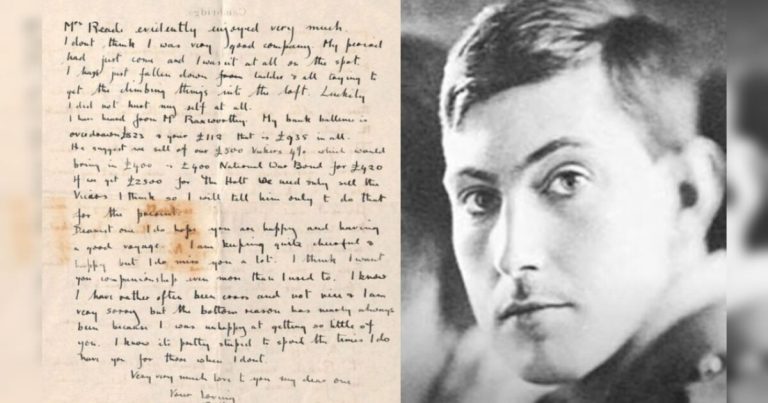 Cambridge
Mrs Reade evidently enjoyed very much.
I dont think I was very good company. My peroad
had just come and I wasnt at all on the spot.
I had just fallen down from ladder & all trying to
get the climbing things into the loft. Luckily
I did not hurt my self at all.
I have heard from Mr Raxworthy. My bank ballence is
overdrawn £823 & your £112 that is £935 in all.
He suggest we sell of our £500 Vickers 4% which would
bring in £400 & £400 National War Bond for £420
If we get £2500 for The Holt we need only sell the
Vicars I think so I will tell him only to do that
for the present.
Dearest one I do hope you are happy and having
a good voyage. I am keeping quite cheerful &
happy but I do miss you a lot. I think I want
you companionship even more than I used to. I know
I have rather often been cross and not nice & I am
very sorry but the bottom reason has nearly always
been because I was unhappy at getting so little of
you. I know its pretty stupid to spoil the times I do
have you for those when I dont.
Very very much love to you my dear one
Your loving